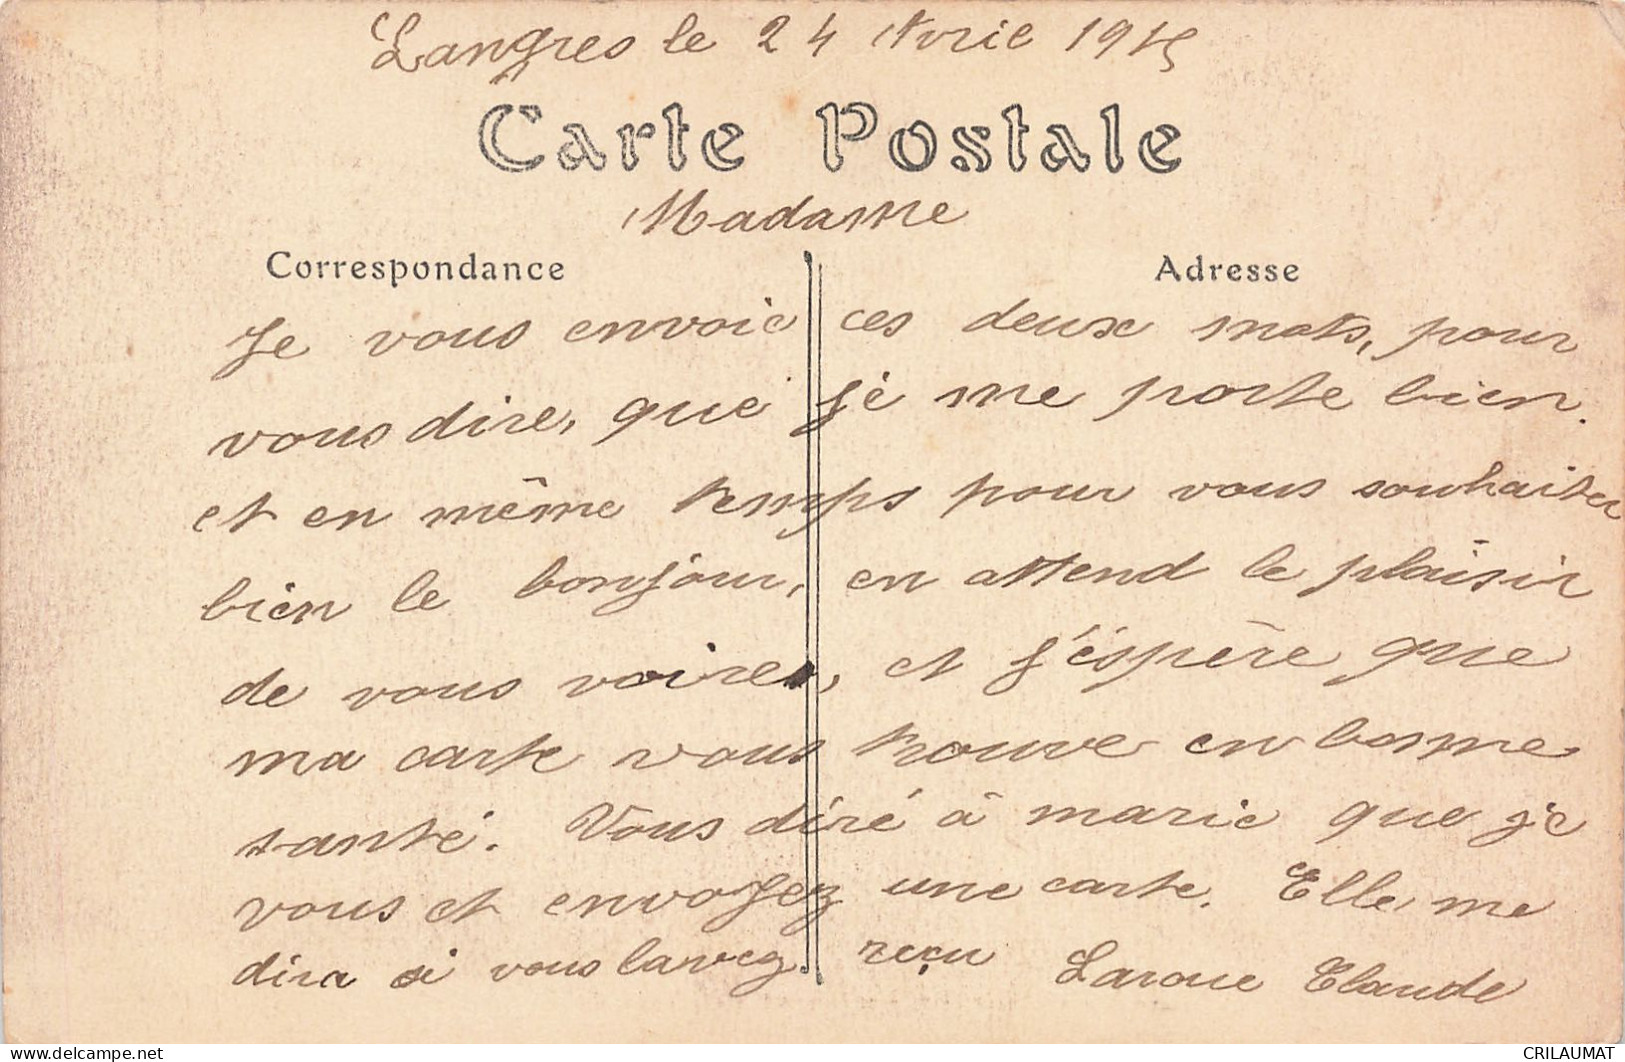 Langres le 24 Avril 1915
Carte Postale
Madame
Correspondance Adresse
Je vous envoie ces deux mots, pour
vous dire, que je me porte bien.
et en même temps pour vous souhaiter
bien le bonjour, en attend le plaisir
de vous voire, et j'éspère que
ma carte vous trouve en bonne
santé. Vous diré à marie que je
vous et envoyez une carte. Elle me
dira si vous lavez reçu Laroue Claude
CRILAUMAT